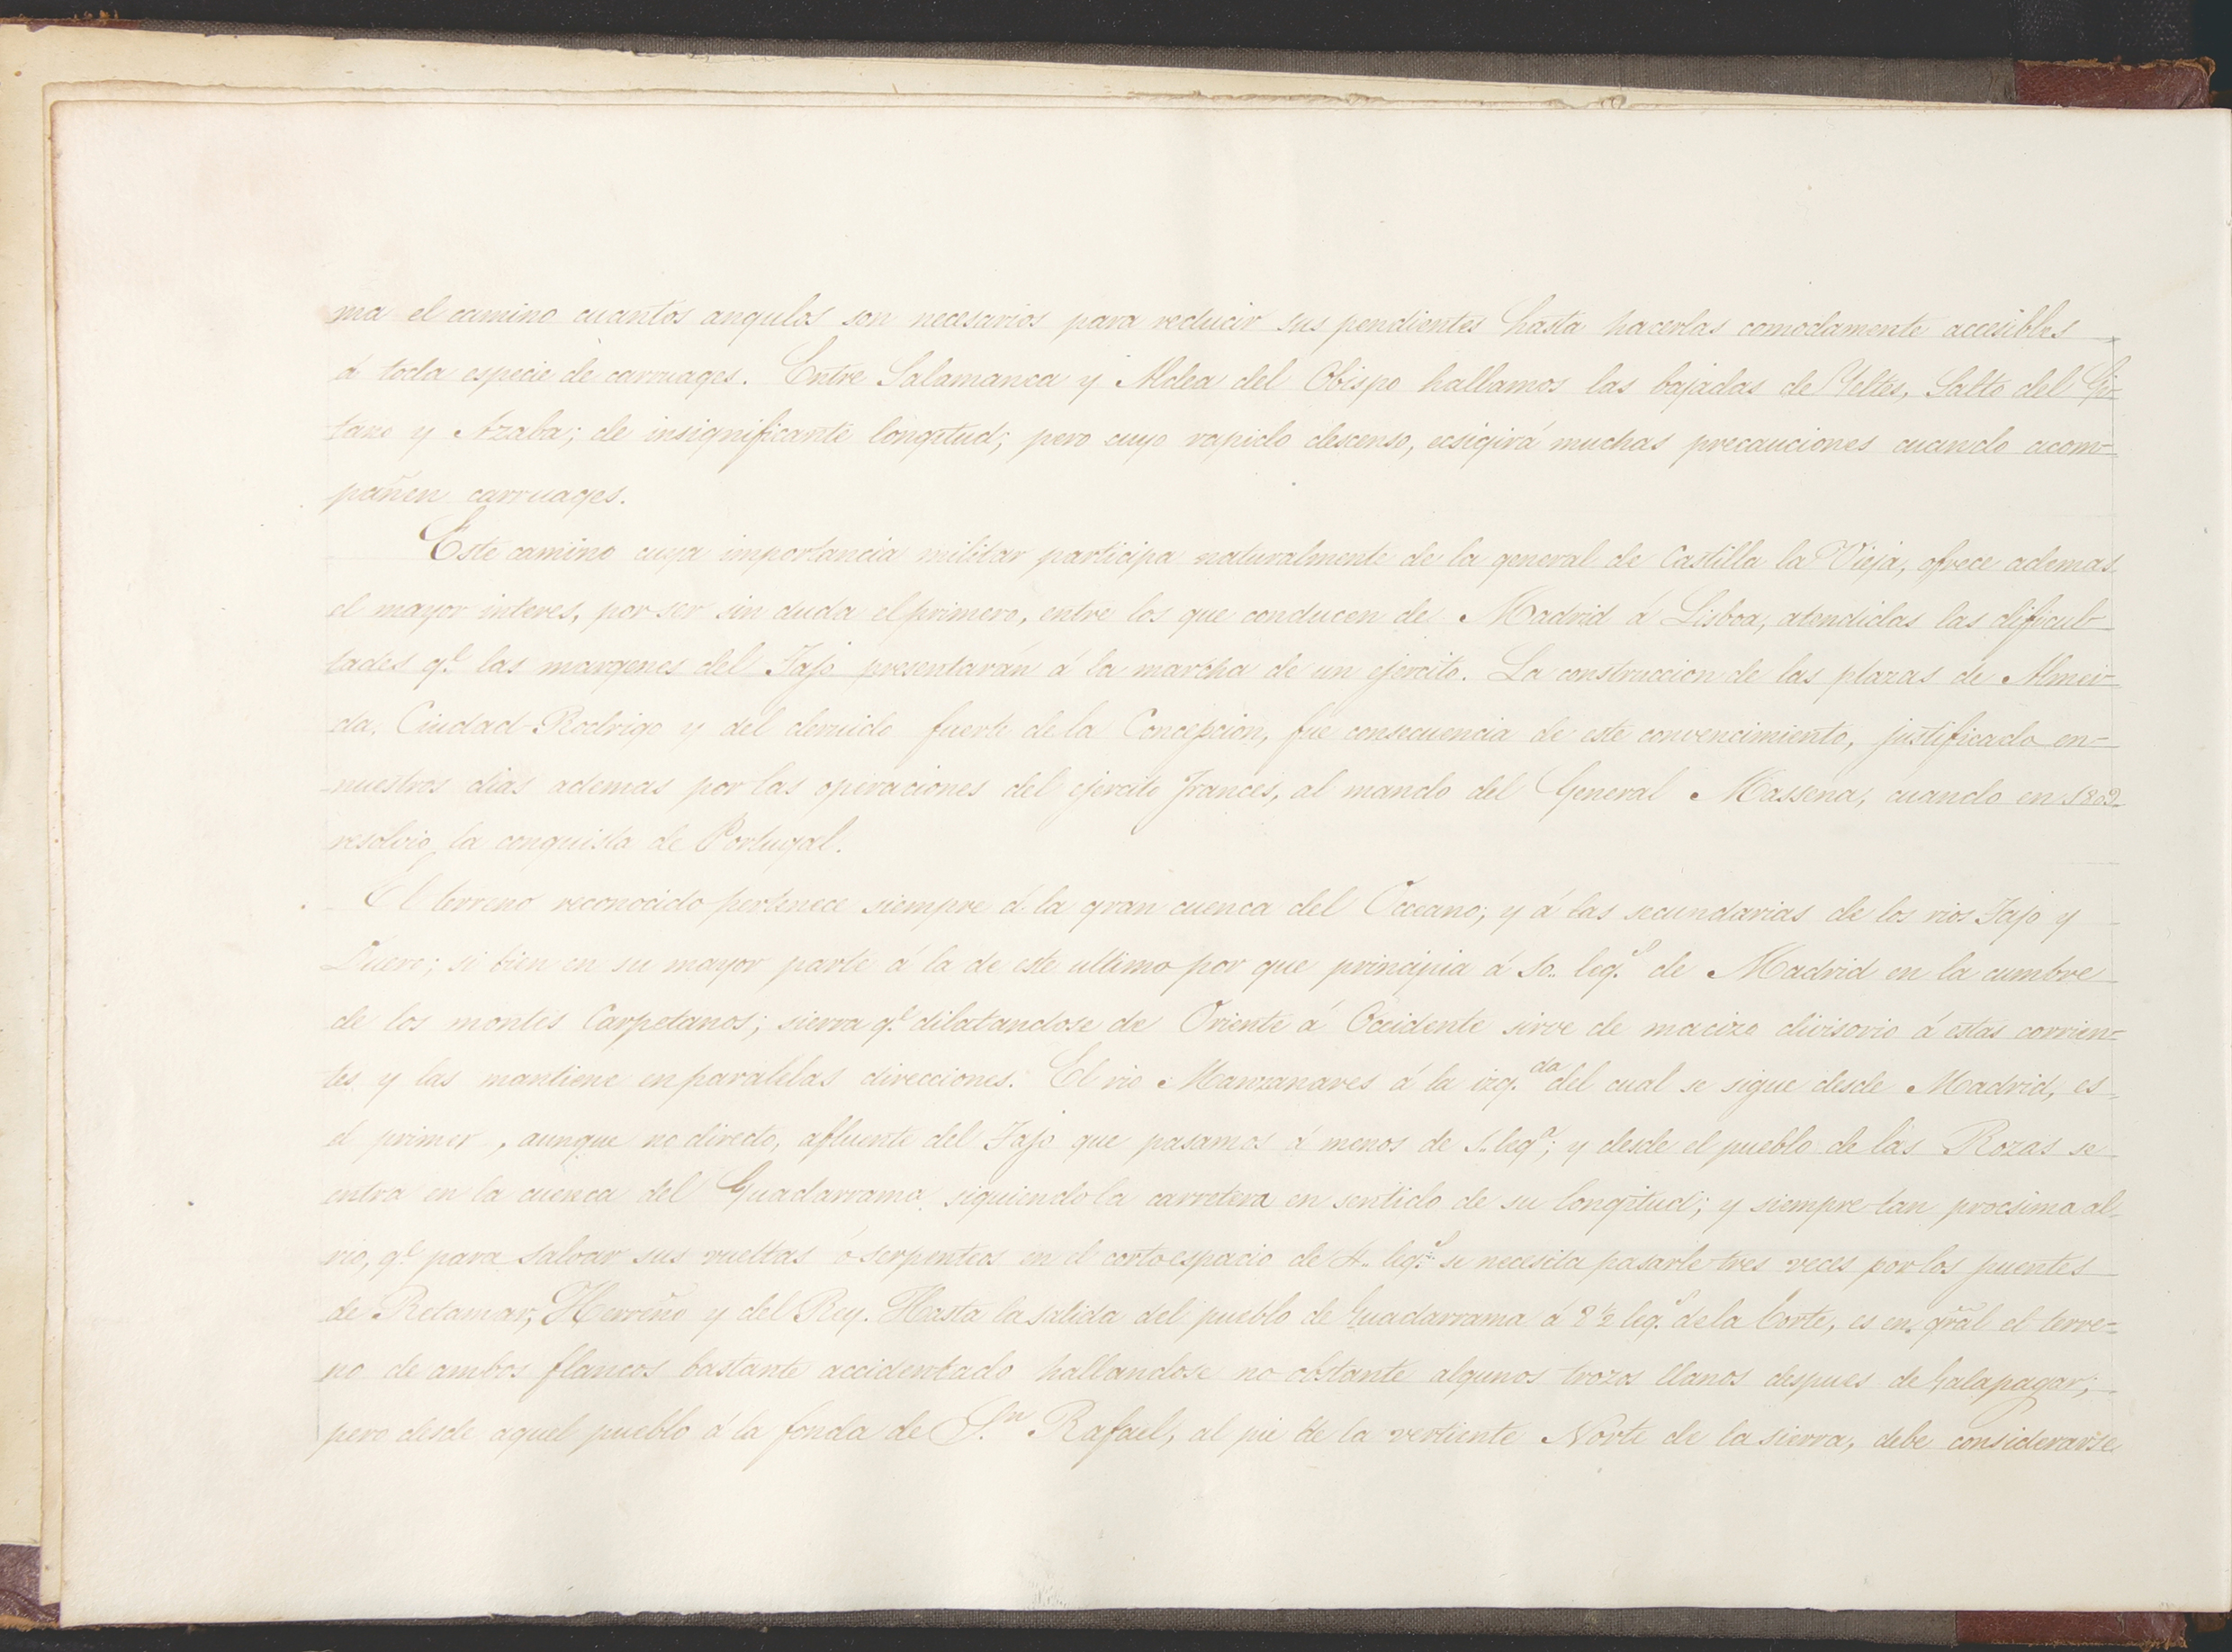 ma el camino cuantos angulos son necesarios para reducir sus pendientes hasta hacerlas comodamente accesibles
á toda especie de carruages. Entre Salamanca y Aldea del Obispo hallamos las bajadas de Yeltes, Salto del Gi-
tano y Azaba; de insignificante longitud; pero cuyo rapido descenso, ecsigirá muchas precauciones cuando acom-
pañen carruages.
Este camino cuya importancia militar participa naturalmente de la general de Castilla la Vieja, ofrece ademas
el mayor interes, por ser sin duda el primero, entre los que conducen de Madrid á Lisboa, atendidas las dificul-
tades q.e las margenes del Tajo presentarán á la marcha de un ejercito. La construccion de las plazas de Almei-
da, Ciudad-Rodrigo y del derruido fuerte de la Concepcion, fue consecuencia de este convencimiento, justificado en-
nuestros dias ademas por las operaciones del ejercito frances, al mando del General Massena, cuando en 1809
resolvio la conquista de Portugal.
El terreno reconocido pertenece siempre á la gran cuenca del Occeano; y á las secundarias de los rios Tajo y
Duero; si bien en su mayor parte á la de este ultimo por que principia á 10.. leg.s de Madrid en la cumbre
de los montes Carpetanos; sierra q.e dilatandose de Oriente á Occidente sirve de macizo divisorio á estas corrien-
tes y las mantiene en paralelas direcciones. El rio Manzanares á la izq.da del cual se sigue desde Madrid, es
el primer, aunque no directo, afluente del Tajo que pasamos á menos de 1. leg.a; y desde el pueblo de las Rozas se
entra en la cuenca del Guadarrama siguiendo la carretera en sentido de su longitud; y siempre tan procsima al
rio, q.e para salvar sus vueltas ó serpenteos en el corto espacio de 4.. leg.s se necesita pasarle tres veces por los puentes
de Retamar, Herreño y del Rey. Hasta la salida del pueblo de Guadarrama á 8 1/2 leg.s de la Corte, es en gral el terre-
no de ambos flancos bastante accidentado hallandose no obstante algunos trozos llanos despues de Galapagar;
pero desde aquel pueblo á la fonda de S.n Rafael, al pie de la vertiente Norte de la sierra, debe considerarse